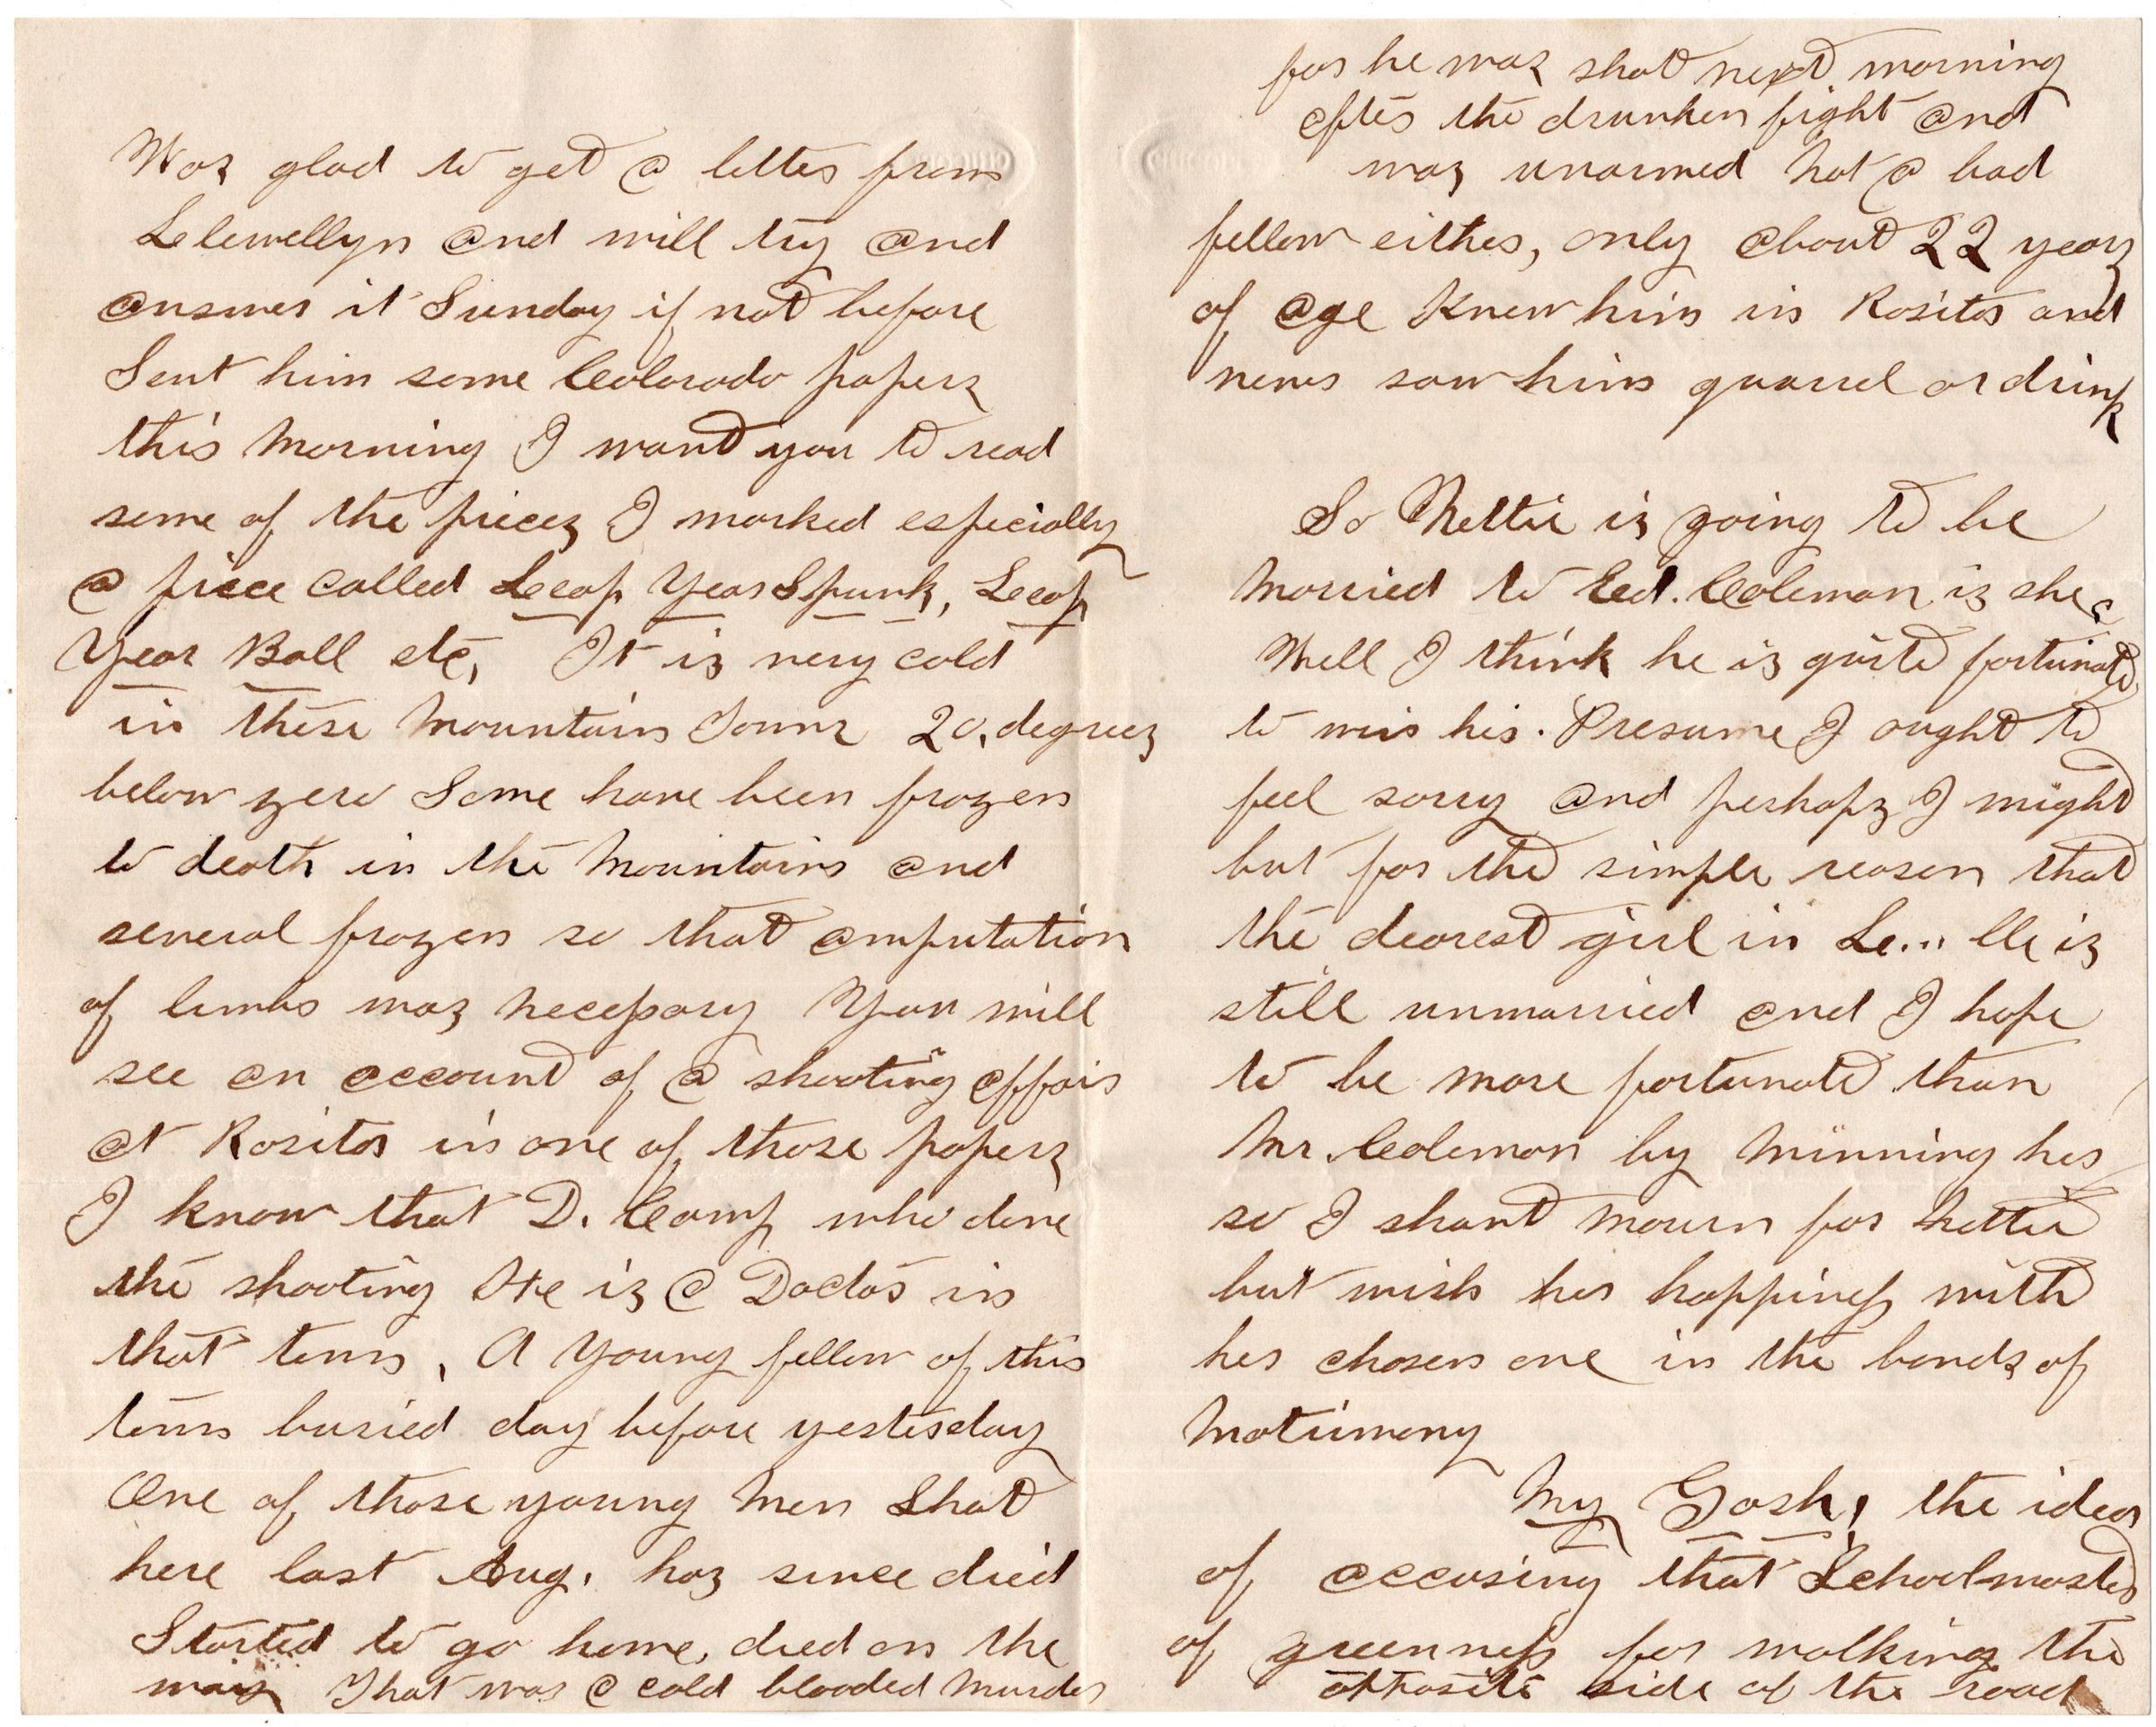 Was glad to get a letter from
Llewellyn and will try and
answer it Sunday if not before
Sent him some Colorado papers
this morning I want you to read
some of the pieces I marked especially
a piece called Leap Year Spunk, Leap
Year Ball etc, It is very cold
in these mountain Towns 20. degrees
below zero Some have been frozen
to death in the mountains and
several frozen so that amputation
of limbs was necessary You will
see an account of a shooting affair
at Rosita in one of those papers
I know that D. Camp who done
the shooting He is a Doctor in
that town, A young fellow of this
town buried day before yesterday
One of those young men Shot
here last Aug. has since died
Started to go home, died on the
way That was a cold blooded murder
for he was shot next morning
after the drunken fight and
was unarmed not a bad
fellow either, only about 22 years
of age Knew him in Rosita and
never saw him quarrel or drink
So Nettie is going to be
married to Ed. Coleman is she
Well I think he is quite fortunate
to win her. Presume I ought to
feel sorry and perhaps I might
but for the simple reason that
the dearest girl in Le... lle is
still unmarried and I hope
to be more fortunate than
Mr. Coleman by winning her
so I shant mourn for Nettie
but wish her happiness with
her chosen one in the bonds of
matrimony
My Gosh, the idea
of accusing that Schoolmaster
of greenness for walking the
opposite side of the road